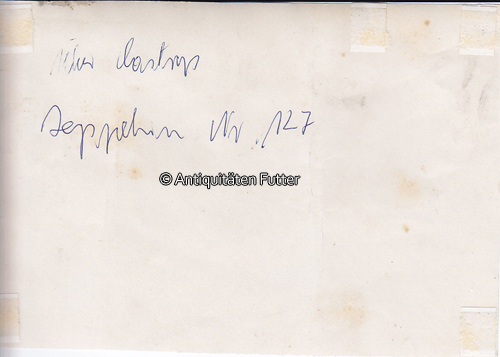 über Castrop
Zeppelin Nr. 127
© Antiquitäten Futter